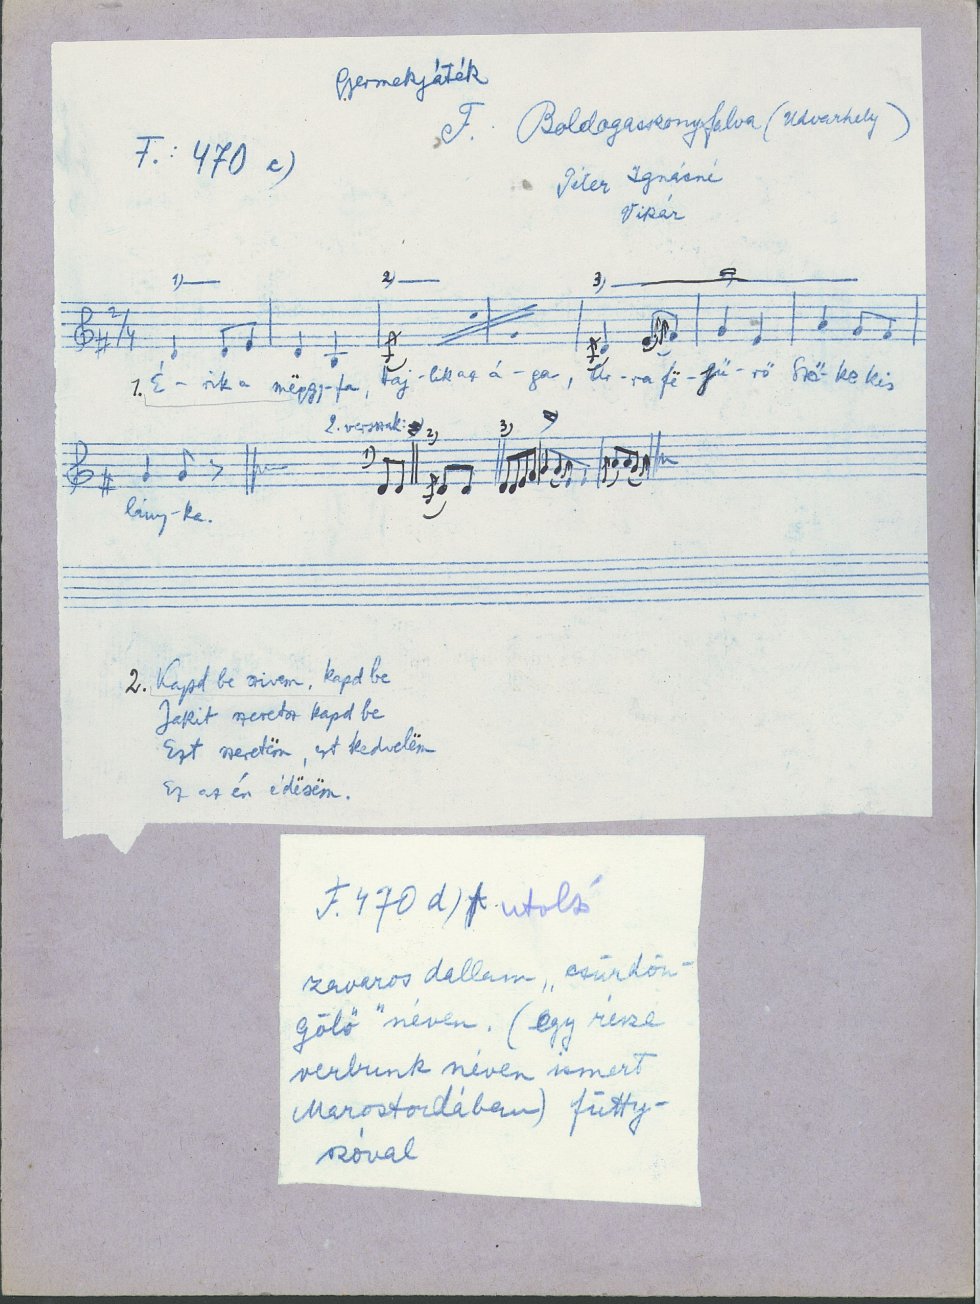 Gyermekjáték
F. Boldogasszonyfalva (Udvarhely)
F.: 470 c)
Péter Ignácné
Vikár
1) 2) 3)
2/4
1. É - rik a mëggy-fa, Haj-lik az á - ga, Ur-ra fë-jü-rő Szö-ke kis
2. versszak: 1) 2) 3)
lány-ka.
2. Kapd be szivem, kapd be
Jakit szeretsz kapd be
Ezt szeretëm, ezt kedvelëm
Ez az én édësëm.
F. 470 d) utolsó
zavaros dallam „csürdön-
gölő" néven. (egy része
verbunk néven ismert
Marostordában) fütty-
szóval